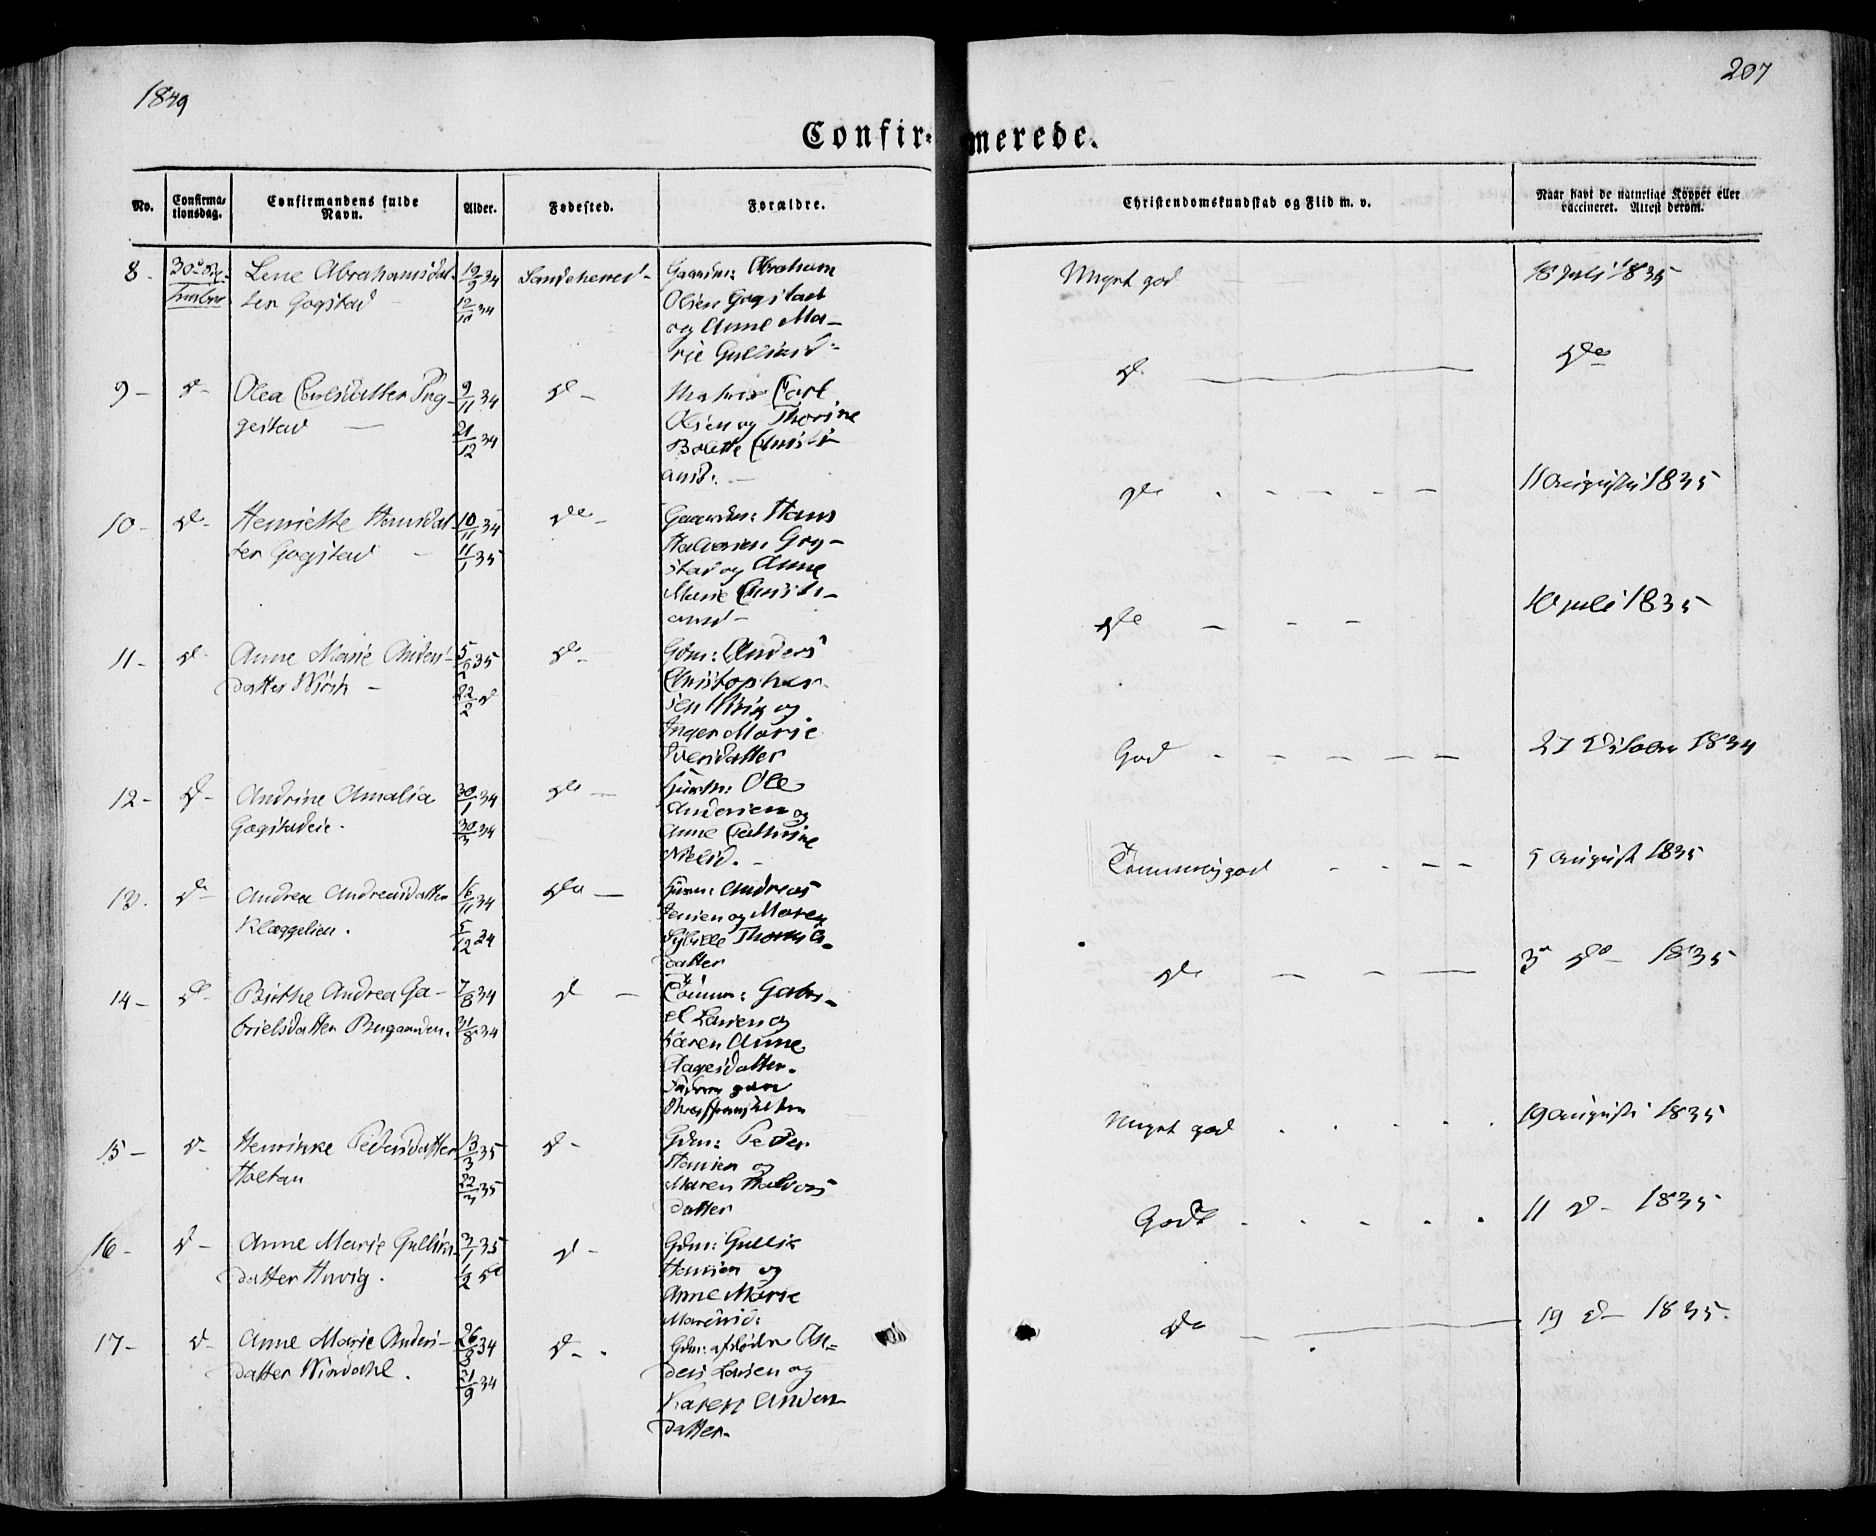 1849
207
Confir= merede.
No.
Confirma-
tionsdag.
Confirmandens fulde
Navn.
Alder.
Fødested.
Forældre.
Christendomskundskab og Flid m. v.
Naar havt de naturlige Kopper eller
vaccineret. Attest derom.
8-
Lene Abrahamsdat-
ter Gogstad
19/9 34
12/10 34
Sandeherred-
Gaardm: Abraham
Olsen Gogstad
og Anne Ma-
rie Gulliksd:
Meget god
18 Juli 1835
9-
D-
Olea Carlsdatter Bug-
gestad
9/11 34
21/12 34
D-
Matros Carl
Olsen og Thorine
Bolette Christi-
ansd.
D.
Do
10-
D-
Henriette Hansdat-
ter Gogstad
10/11 34
11/1 35
Do-
Gaardm: Hans
Halvorsen Gog-
stad og Anne
Marie Christi-
ansd-
Do
11 Augusti 1835
11-
D-
Anne Marie Anders-
datter Virik
5/2 35
22/2 D
Do-
Gdm: Anders
Christopher-
sen Virik og
Inger Marie
Iversdatter
Do
10 Juli 1835
12-
D-
Andrine Amalia
Gogstadeie.
30/1 34
30/3 34
Do
Ole
Andersen og
Anne Cathrine
Nielsd.
God
27 1834
13.
D-
Andrea Andreasdatter
Klæggelien.
16/11 34
5/12 34
Do
Andreas
Jensen og Maren
Sybille Thores-
datter
Temmelig god
5 August 1835
14-
D-
Birthe Andrea Ga-
brielsdatter Bugaarden.
7/8 34
31/8 34
D
Tømm: Gabri-
el Larsen og
Karen Anne
Aagesdatter.
Do
3 Do- 1835
15-
D-
Henrikke Pedersdatter
Holtan
13/3 35
22/3 35
D-
Gdm: Peder
Hansen og
Maren Halvors
datter
Meget god
19 Augusti 1835
16-
D-
Anne Marie Gulliks-
datter Hervig.
3/1 35
D-
Gdm: Gullik
Hansen og
Anne Marie
Godt
11 D- 1835
17-
D-
Anne Marie Anders-
datter Vindahl.
26/8 34
21/9 34
D-
Gdm: afdøde An=
ders Larsen og
Karen Anders
datter-
Do
19 D- 1835